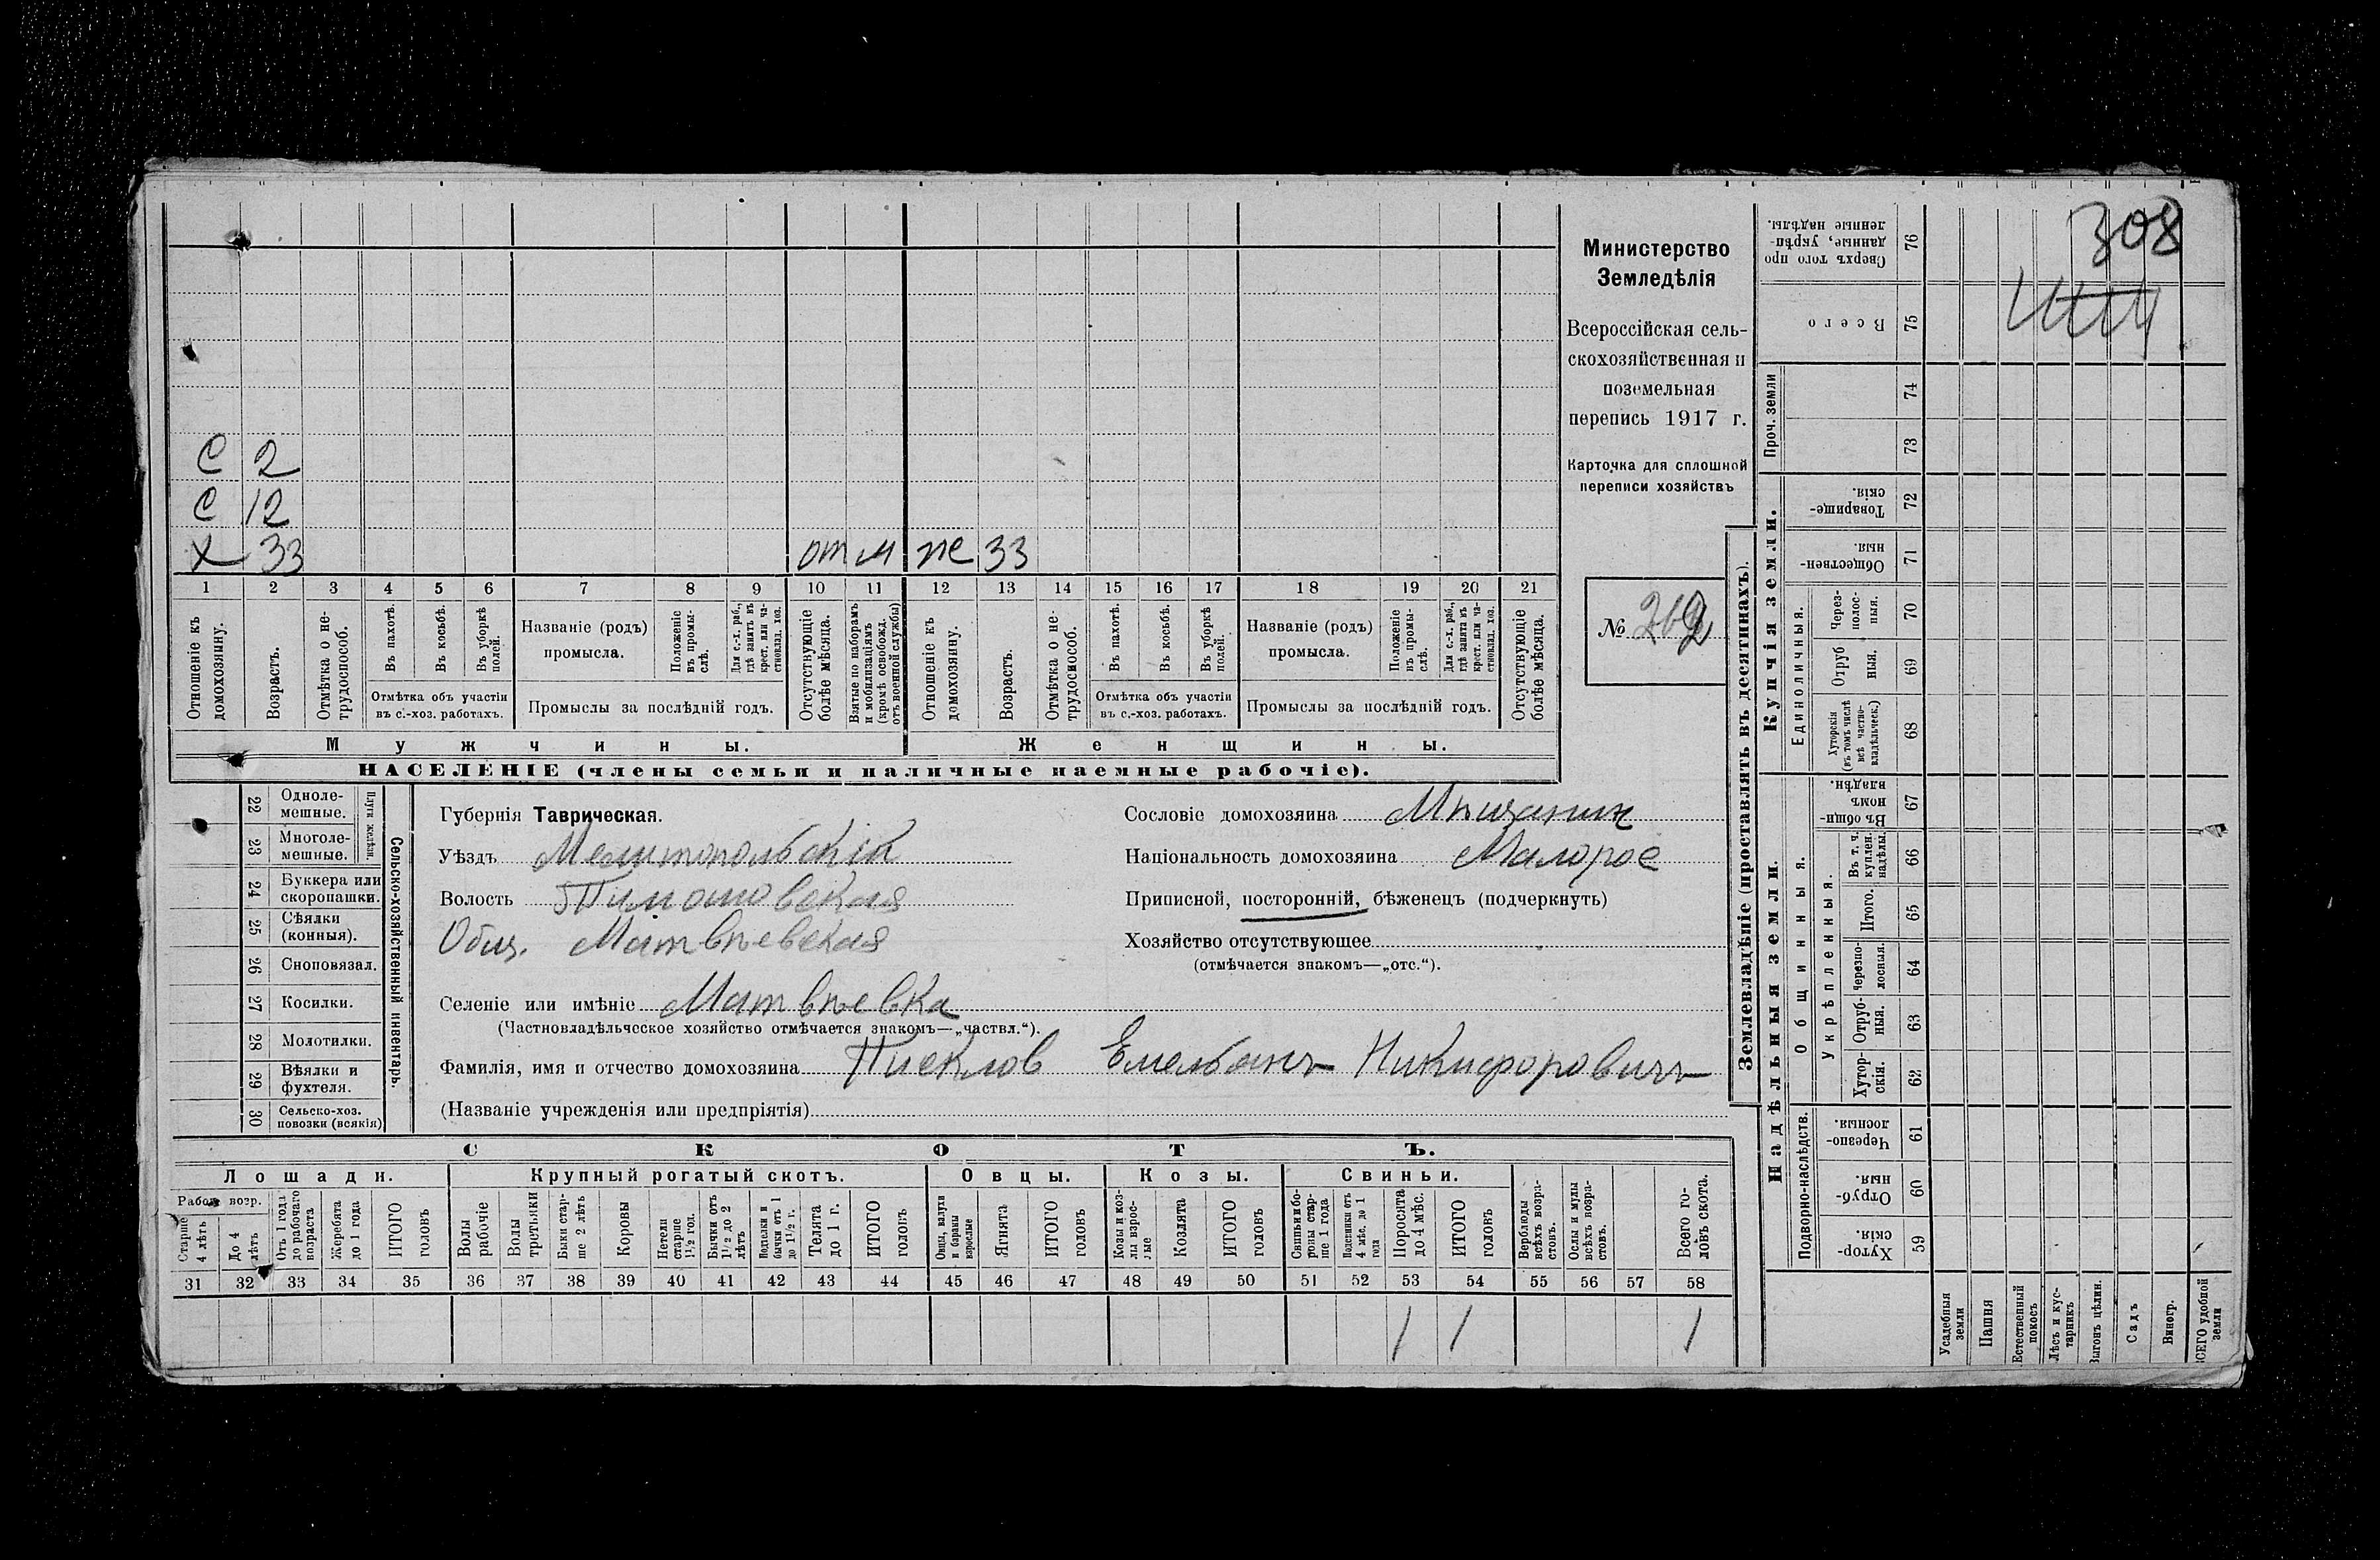 308
Министерство
Земледѣлія
Всероссійская сель-
скохозяйственная и
поземельная
перепись 1917 г.
Карточка для сплошной
переписи хозяйствъ
№
С 2
С 12
Х 33 от м же 33
1 2 3 4 5 6 7 8 9 10 11 12 13 14 15 16 17 18 19 20 21
Отношеніе къ домохозяину.
Возрастъ.
Отмѣтка о не-трудоспособ.
Въ пахотѣ.
Въ косьбѣ.
Въ уборкѣ полей.
Отмѣтка объ участіи
въ с.-хоз. работахъ.
Названіе (родъ)
промысла.
Положеніе въ промы-слѣ.
Для с.-х. раб., гдѣ занятъ въ крест. или ча-стновлад. хоз.
Промыслы за послѣдній годъ.
Отсутствующіе болѣе мѣсяца.
Взятые по наборамъ и мобилизаціямъ (кромѣ освобожд. отъ военной службы)
Отношеніе къ домохозяину.
Возрастъ.
Отмѣтка о не-трудоспособ.
Въ пахотѣ.
Въ косьбѣ.
Въ уборкѣ полей.
Отмѣтка объ участіи
въ с.-хоз. работахъ.
Названіе (родъ)
промысла.
Положеніе въ промы-слѣ.
Для с.-х. раб., гдѣ занята въ крест. или ча-стновлад. хоз.
Промыслы за послѣдній годъ.
Отсутствующіе болѣе мѣсяца.
Мужчины.
Женщины.
НАСЕЛЕНІЕ (члены семьи и наличные наемные рабочіе).
Сельско-хозяйственный инвентарь.
Плуги желѣзн.
22 Одноле-мешные.
23 Многоле-мешные.
24 Буккера или скоропашки.
25 Сѣялки (конныя).
26 Сноповязал.
27 Косилки.
28 Молотилки.
29 Вѣялки и фухтеля.
30 Сельско-хоз. повозки (всякія)
Губернія Таврическая.
Уѣздъ Мелитопольскій
Волость Тимошовская
Общ. Матвѣевская
Селеніе или имѣніе Матвѣевка
(Частновладѣльческое хозяйство отмѣчается знакомъ—„частвл.“).
Сословіе домохозяина Мѣщанин
Національность домохозяина Малорос
Приписной, посторонній, бѣженецъ (подчеркнуть)
Хозяйство отсутствующее
(отмѣчается знакомъ—„отс.“).
Фамилія, имя и отчество домохозяина Писклов Емельянъ Никифоровичъ
(Названіе учрежденія или предпріятія)
СКОТЪ.
Лошади.
Крупный рогатый скотъ.
Овцы.
Козы.
Свиньи.
Рабоч. возр.
Старше 4 лѣтъ
До 4 лѣтъ
Отъ 1 года до рабочаго возраста
Жеребята до 1 года
ИТОГО головъ
Волы рабочіе
Волы третьяки
Быки стар-ше 2 лѣтъ
Коровы
Нетели старше 1½ год.
Бычки отъ 1½ до 2 лѣтъ
Телята до 1 г.
ИТОГО головъ
Овцы, валухи и бараны взрослые
Ягнята
ИТОГО головъ
Козы и коз-лы взрос-лые
Козлята
ИТОГО головъ
Свиньи и бо-ровы стар-ше 1 года
Подсвинки отъ 4 мѣс. до 1 года
Поросята до 4 мѣс.
ИТОГО головъ
Верблюды всѣхъ возра-стовъ.
Ослы и мулы всѣхъ возра-стовъ.
Всего го-ловъ скота.
31 32 33 34 35 36 37 38 39 40 41 42 43 44 45 46 47 48 49 50 51 52 53 54 55 56 57 58
1 1 1
Землевладѣніе (проставлять въ десятинахъ).
Купчія земли.
Надѣльныя земли.
Сверхъ того про-данные, укрѣп-ленные надѣлы. 76
Всего 75
Проч. земли
74
73
Товарище-скія. 72
Обществен-ныя. 71
Единоличныя.
Через-полос-ныя. 70
Отруб ныя. 69
Хуторскія (въ томъ числѣ всѣ частно-владѣльческ.) 68
Общинныя.
Въ общи-номъ владѣн. 67
Укрѣпленныя.
Въ т. ч. куплен. надѣлы 66
Итого. 65
Черезпо-лосныя. 64
Отруб-ныя. 63
Хутор-скія. 62
Подворно-наслѣдств.
Черезпо-лосныя. 61
Отруб-ныя. 60
Хутор-скія. 59
Усадебныя земли
Пашня
Естественный покосъ
Лѣсъ и кус-тарникъ
Выгонъ цѣлин.
Садъ
Виногр.
ВСЕГО удобной земли